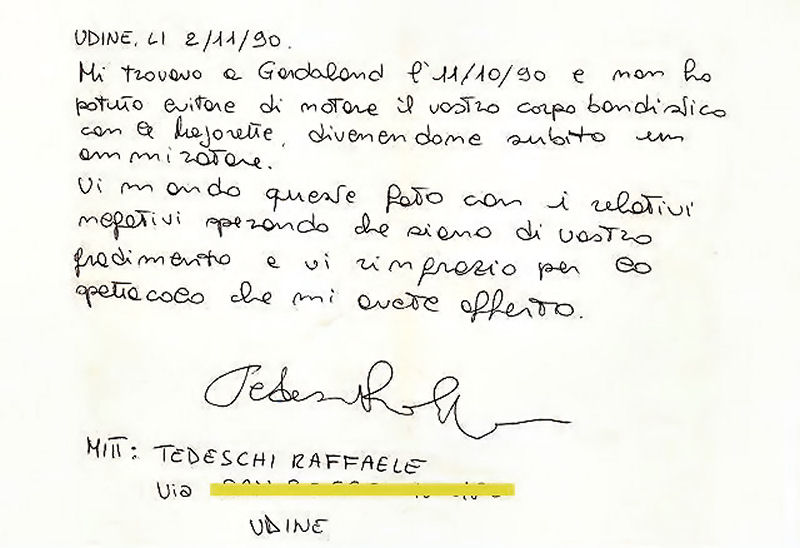 UDINE, LI 2/11/90.
Mi trovavo a Gardaland l'11/10/90 e non ho
potuto evitare di notare il vostro corpo bandistico
con le Majorette, divenendone subito un
ammiratore.
Vi mando queste foto con i relativi
negativi sperando che siano di vostro
gradimento e vi ringrazio per lo
spettacolo che mi avete offerto.
MITT: TEDESCHI RAFFAELE
Via
UDINE